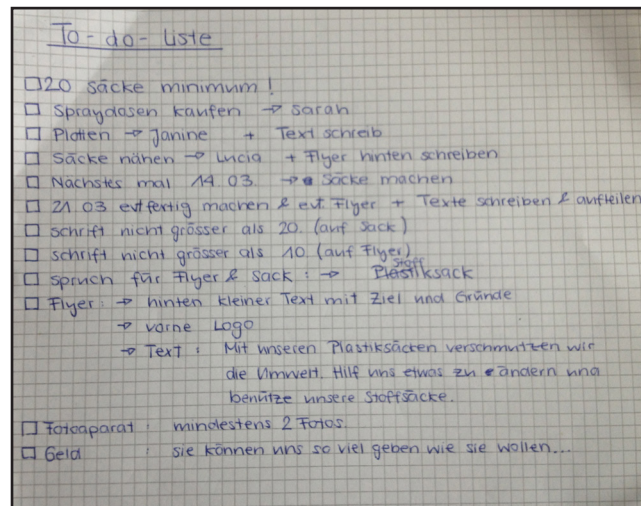 To-do-Liste
□ 20 säcke minimum!
□ Spraydosen kaufen → Sarah
□ Platten → Janine + Text schreib
□ Säcke nähen → Lucia + Flyer hinten schreiben
□ Nächstes mal 14.03. → Säcke machen
□ 21.03 evt fertig machen & evt Flyer + Texte schreiben & aufteilen
□ schrift nicht grösser als 20. (auf Sack)
□ schrift nicht grösser als 10. (auf Flyer)
□ Spruch für Flyer & Sack : → Stoffsack
□ Flyer : → hinten kleiner Text mit Ziel und Gründe
→ vorne Logo
→ Text : Mit unseren Plastiksäcken verschmutzen wir
die Umwelt. Hilf uns etwas zu ändern und
benütze unsere Stoffsäcke.
□ Fotoaparat : mindestens 2 Fotos.
□ Geld : sie können uns so viel geben wie sie wollen...